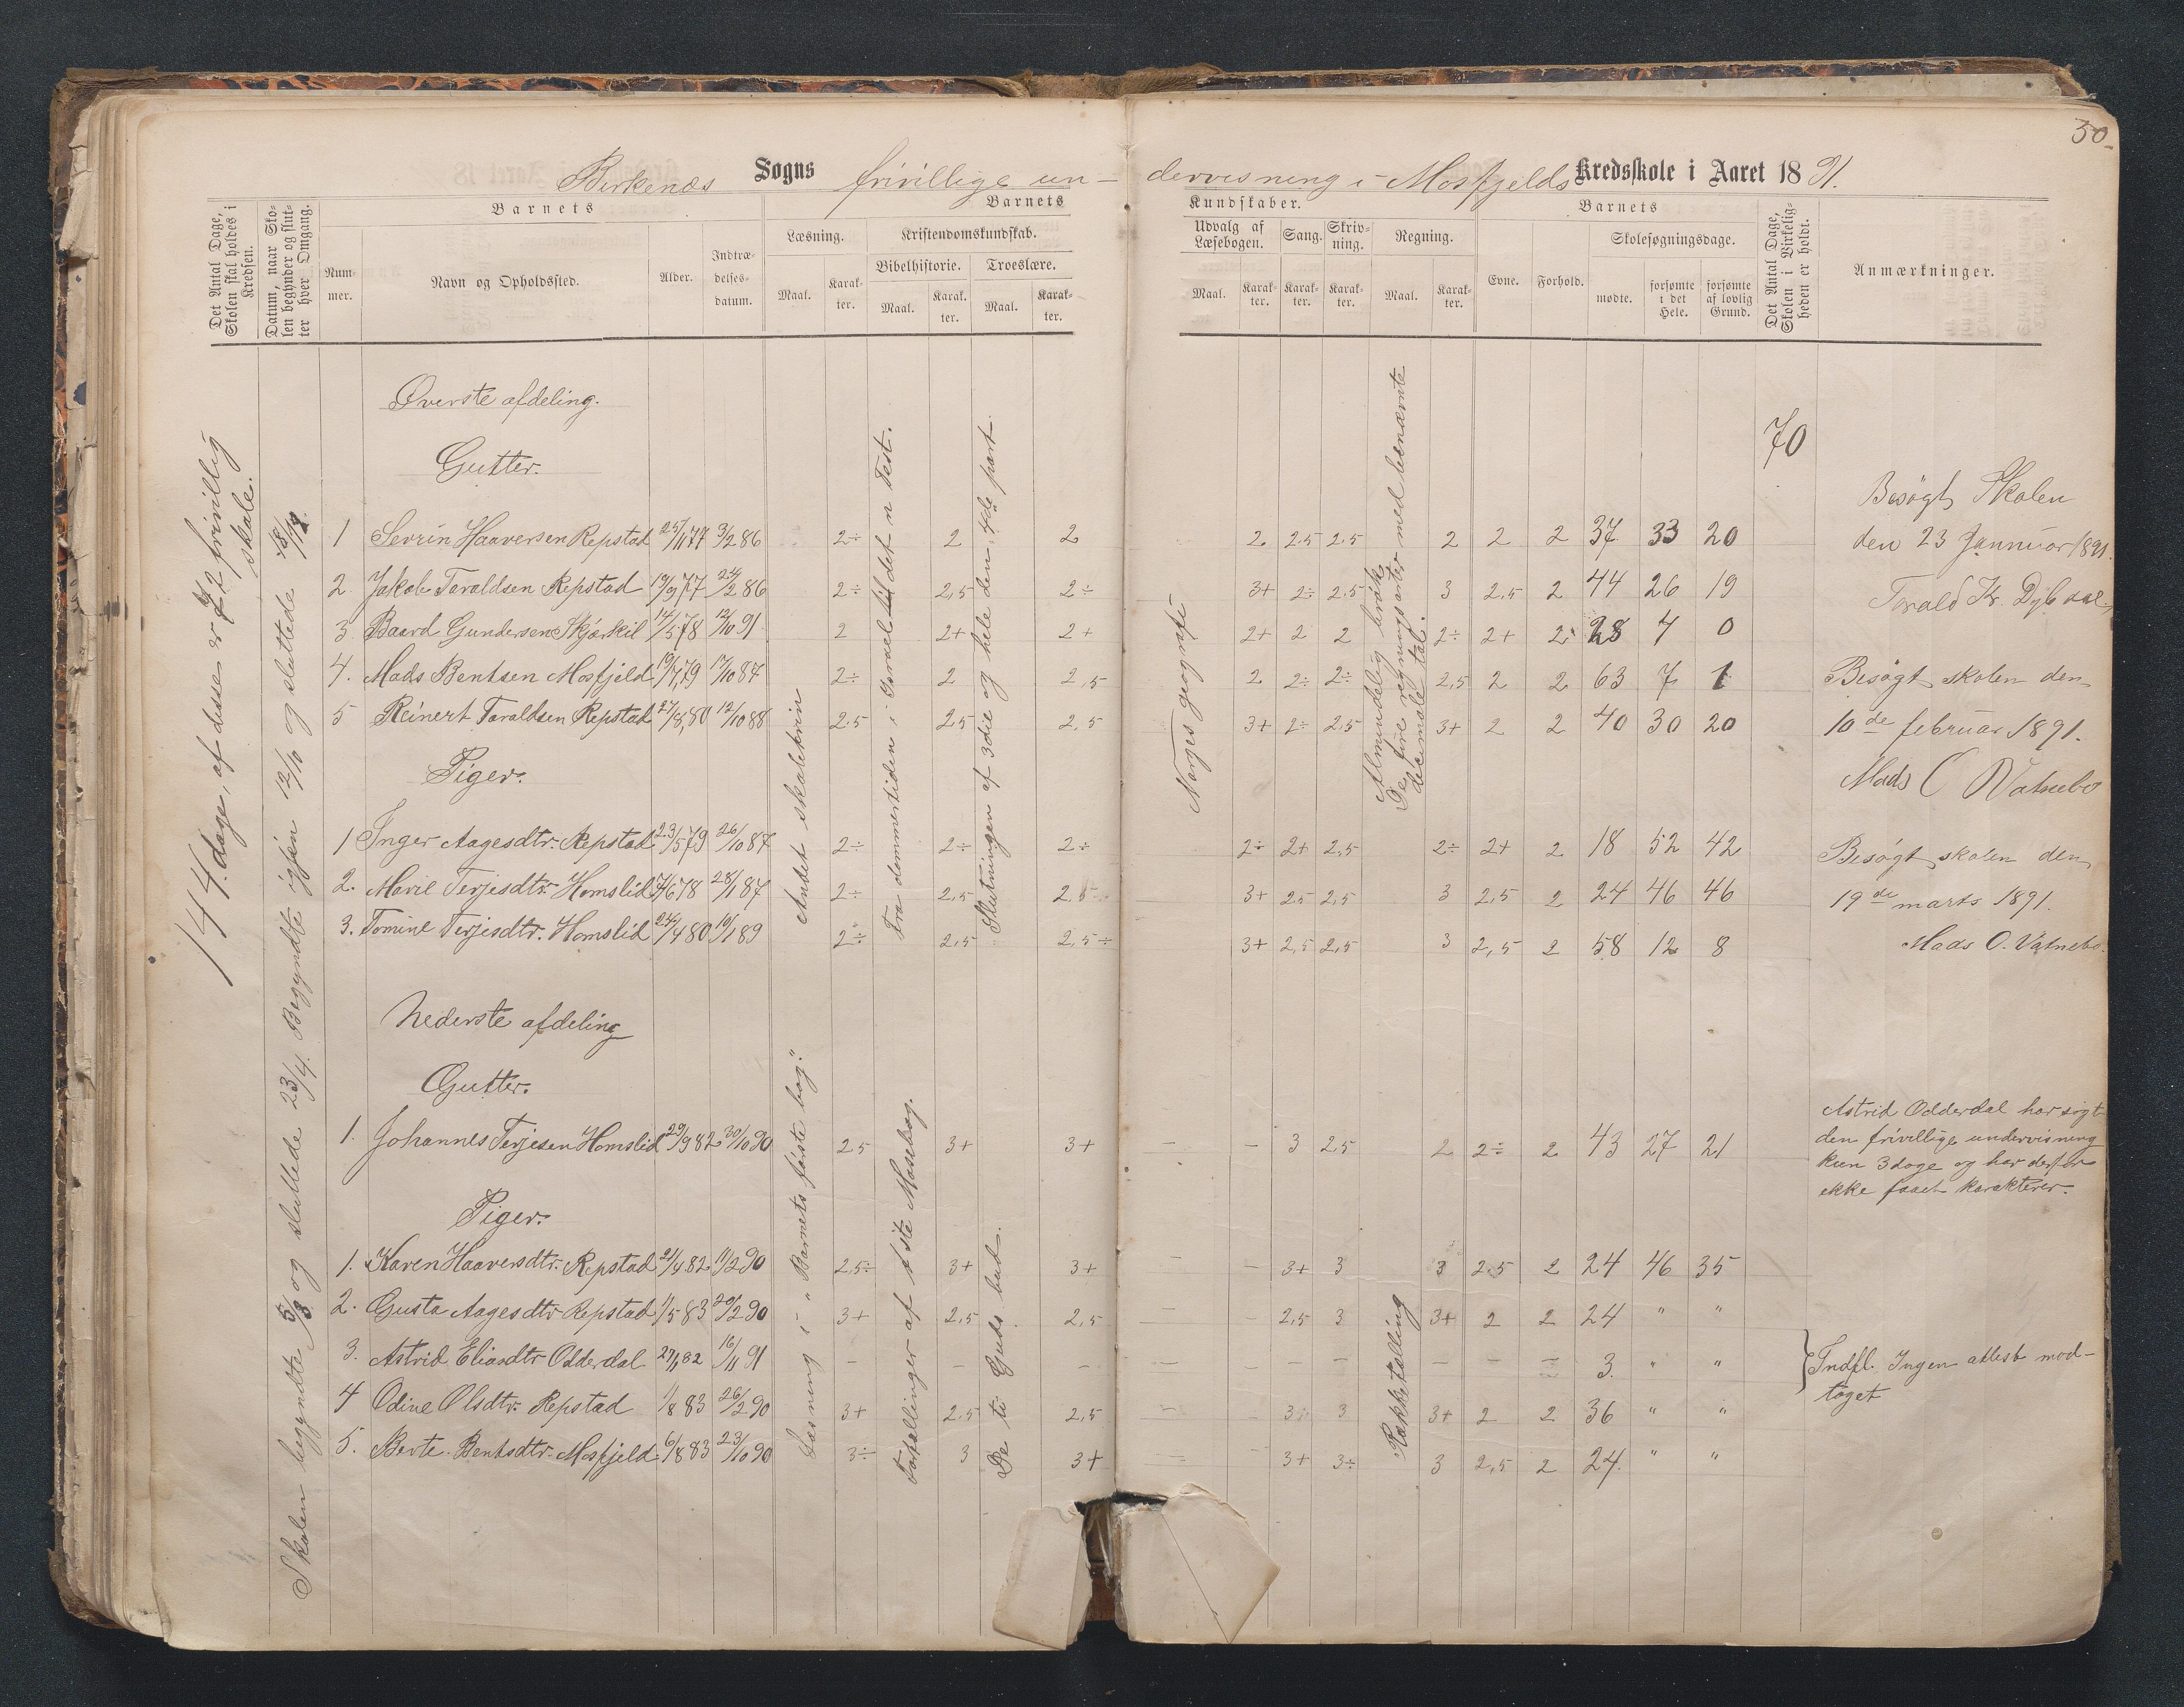 50.
Birkenæs Sogns frivillige un-
dervisning i Mosfjelds Kredsskole i Aaret 18 91.
Det Antal Dage, Skolen skal holdes i Kredsen.
Datum, naar Skolen begynder og slutter hver Omgang.
Barnets
Nummer.
Navn og Opholdssted.
Alder.
Indtrædelsesdatum.
Barnets
Læsning.
Maal.
Karakter.
Kristendomskundskab.
Bibelhistorie.
Maal.
Karakter.
Troeslære.
Maal.
Karakter.
Kundskaber.
Udvalg af Læsebogen.
Maal.
Karakter.
Sang.
Karakter.
Skrivning.
Karakter.
Regning.
Maal.
Karakter.
Barnets
Evne.
Forhold.
Skolesøgningsdage.
mødte.
forsømte i det Hele.
forsømte af lovlig Grund.
Det Antal Dage, Skolen i Virkeligheden er holdt.
Anmærkninger.
144 dage, af disse er 72 frivillig skole.
Skolen begyndte og sluttede 23/4. Begyndte igjen 12/10 og sluttede
Øverste afdeling.
Gutter.
70
1 Sevrin Haaversen Repstad 25/11 77 3/2 86 2÷ 2 2 2 2.5 2.5 2 2 2 37 33 20
2. Jakob Taraldsen Repstad 19/9 77 24/2 86 2÷ 2,5 2÷ 3+ 2÷ 2.5 3 2.5 2 44 26 19
3. Baard Gundersen Skjærkil 14/5 78 12/10 91 2 2+ 2+ 2+ 2 2 2÷ 2+ 2 28 7 0
4. Mads Bentsen Mosfjeld 19/7 79 17/10 87 2÷ 2 2,5 2 2÷ 2÷ 2,5 2 2 63 7 1
5 Reinert Taraldsen Repstad 27/8 80 12/10 88 2.5 2,5 2,5 3+ 2÷ 2.5 3+ 2 2 40 30 20
Piger.
1 Inger Aagesdtr. Repstad 23/5 79 26/10 87 2÷ 2÷ 2÷ 2÷ 2+ 2,5 2÷ 2+ 2 18 52 42
2. Marie Terjesdtr. Homslid 7/6 78 28/1 87 2÷ 2,5 2,5 3+ 2,5 2,5 3 2,5 2 24 46 46
3. Tomine Terjesdtr. Homslid 24/4 80 10/1 89 2÷ 2,5 2,5÷ 3+ 2,5 2,5 3 2,5 2 58 12 8
Andet skoletrin
Fra dommertiden i Israel til det n Test.
Slutningen af 3die og hele den 4de part
Norges geografi
Almindelig brøk
De fire regningsarter med benævnte decimaletal.
Nederste afdeling
Gutter.
1. Johannes Terjesen Homslid 29/9 82 30/10 90 2.5 3+ 3+ - - 3 2,5 2 2÷ 2 43 27 21
Piger.
1. Karen Haaversdtr. Repstad 21/4 82 11/2 90 2,5÷ 3+ 3+ - - 3+ 3 3 2.5 2 24 46 35
2. Gusta Aagesdtr Repstad 1/5 83 20/2 90 3+ 2,5 2,5 - - 2,5 3 3+ 2 2 24 " "
3. Astrid Eliasdtr Odderdal 27/1 82 16/11 91 - - - - - - - - - - 3. " "
4 Odine Olsdtr. Repstad 1/8 83 26/2 90 3+ 2.5 2,5 - - 3+ 3 3+ 2 2 36 " "
5. Berte Bentsdtr. Mosfjeld 6/8 83 23/10 90 3÷ 3 3+ - - 3+ 3÷ 3 2,5 2 24. " "
Læsning i "Barnets første bog".
Fortællinger af 1ste Mosebog.
De ti Guds bud.
Rækketælling
Besøgt Skolen
den 23 Jannuar 1891.
Torald Kr. Dybdal
Besøgt skolen den
10de februar 1891.
Mads O Vatnebo
Besøgt skolen den
19de marts 1891.
Mads O. Vatnebo.
Astrid Odderdal har søgt
den frivillige undervisning
kun 3 dage og har derfor
ikke faaet karakterer.
Indfl. Ingen attest mod-
taget